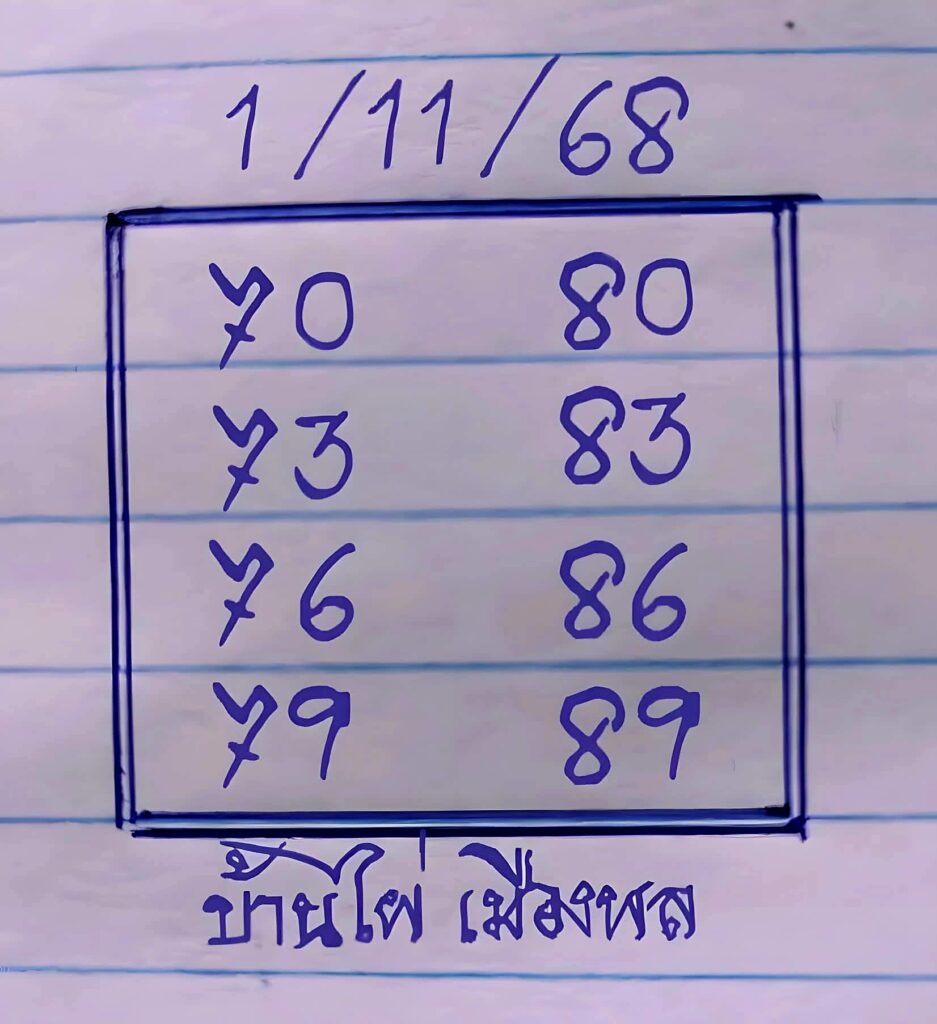 1/11/68
70 80
73 83
76 86
79 89
บ้านไผ่ เมืองพล